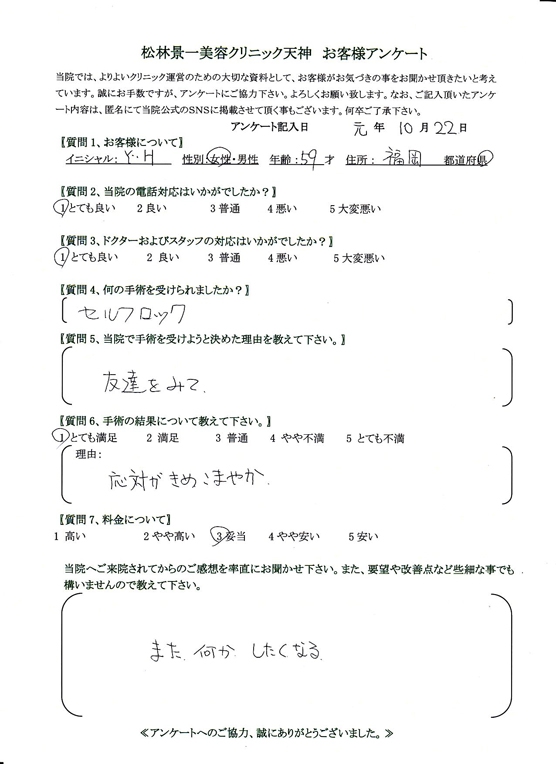 松林景一美容クリニック天神 お客様アンケート
当院では、よりよいクリニック運営のための大切な資料として、お客様がお気づきの事をお聞かせ頂きたいと考え
ています。誠にお手数ですが、アンケートにご協力下さい。よろしくお願い致します。なお、ご記入頂いたアンケ
ート内容は、匿名にて当院公式のSNSに掲載させて頂く事もございます。何卒ご了承下さい。
アンケート記入日 元 年 10 月 22 日
〖質問1、お客様について〗
イニシャル: Y・H 性別:女性・男性 年齢:59 才 住所: 福岡 都道府県
〖質問2、当院の電話対応はいかがでしたか?〗
1とても良い 2 良い 3 普通 4 悪い 5 大変悪い
〖質問3、ドクターおよびスタッフの対応はいかがでしたか?〗
1とても良い 2 良い 3 普通 4 悪い 5 大変悪い
〖質問4、何の手術を受けられましたか?〗
セルフロック
〖質問5、当院で手術を受けようと決めた理由を教えて下さい。〗
友達をみて.
〖質問6、手術の結果について教えて下さい。〗
1とても満足 2 満足 3 普通 4 やや不満 5 とても不満
理由:
応対がきめこまやか.
〖質問7、料金について〗
1 高い 2 やや高い 3 妥当 4 やや安い 5 安い
当院へご来院されてからのご感想を率直にお聞かせ下さい。また、要望や改善点など些細な事でも
構いませんので教えて下さい。
また、何か したくなる.
≪アンケートへのご協力、誠にありがとうございました。≫